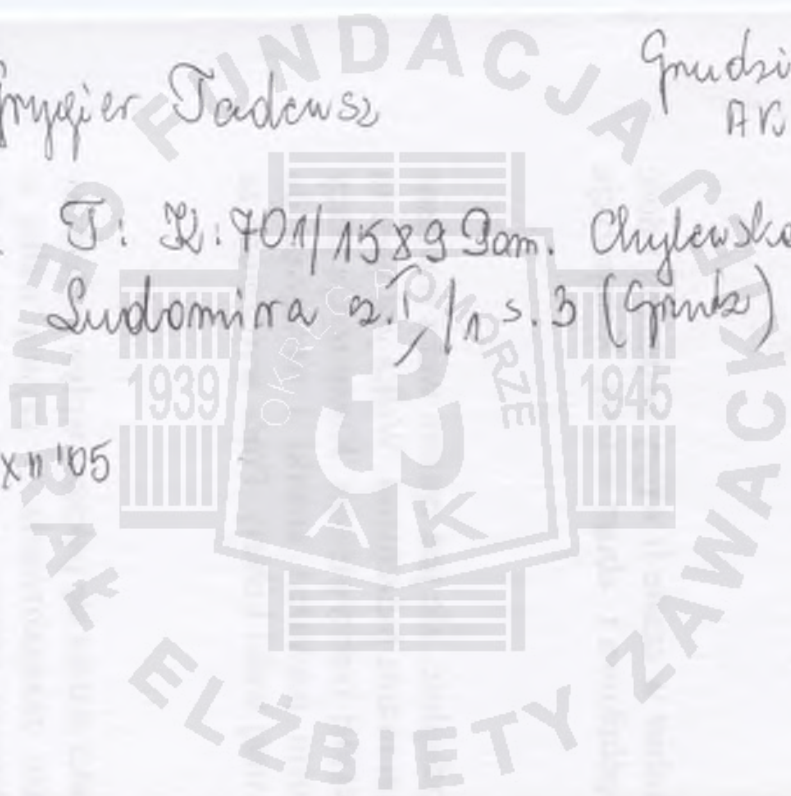 Grygier Tadeusz
Grudzi
AK
T: K: 701/1589 Pom. Chylewska
Ludomira cz. I/1 s. 3 (Grudz)
XII '05
FUNDACJA GENERAŁ ELŻBIETY ZAWACKIEJ
OKRĘG POMORZE
1939
1945
AK